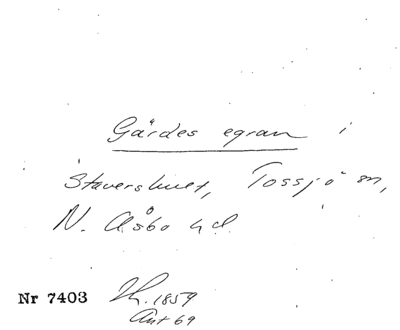 Gärdes egran i
Stavershult, Tossjö sn,
N. Åsbo hd.
Nr 7403 Th. 1859
Ant 69